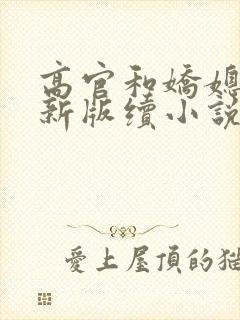 高官和嬌媳
新版續小說
愛上屋頂的貓